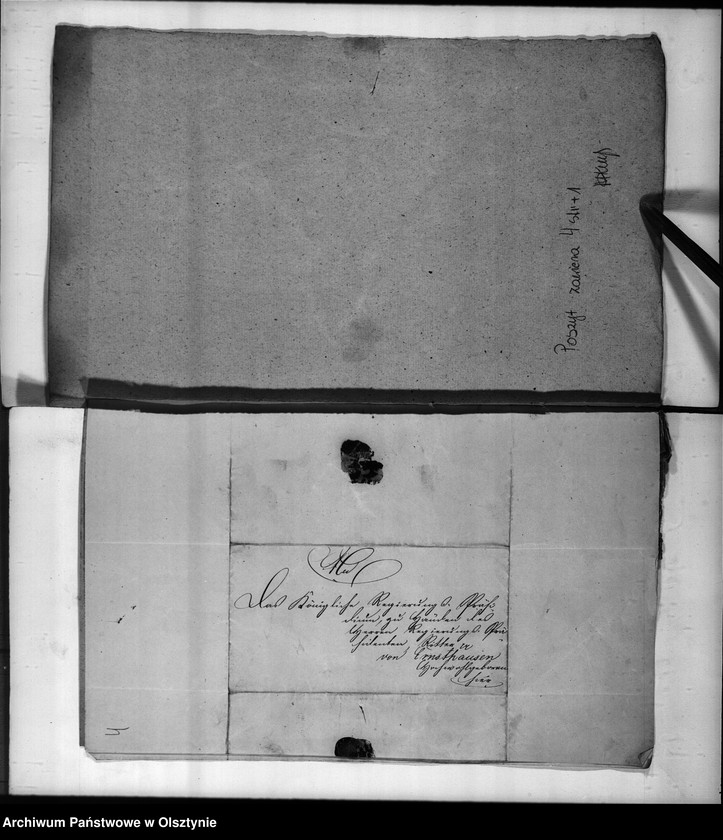 Poszyt zawiera 4 str+1
An
Das Königliche Regierungs-Präsi-
dium, zu Händen des
Herrn Regierungs-Prä-
sidenten Ritter pp
von Ernsthausen
Hochwohlgeboren
hier
4
Archiwum Państwowe w Olsztynie